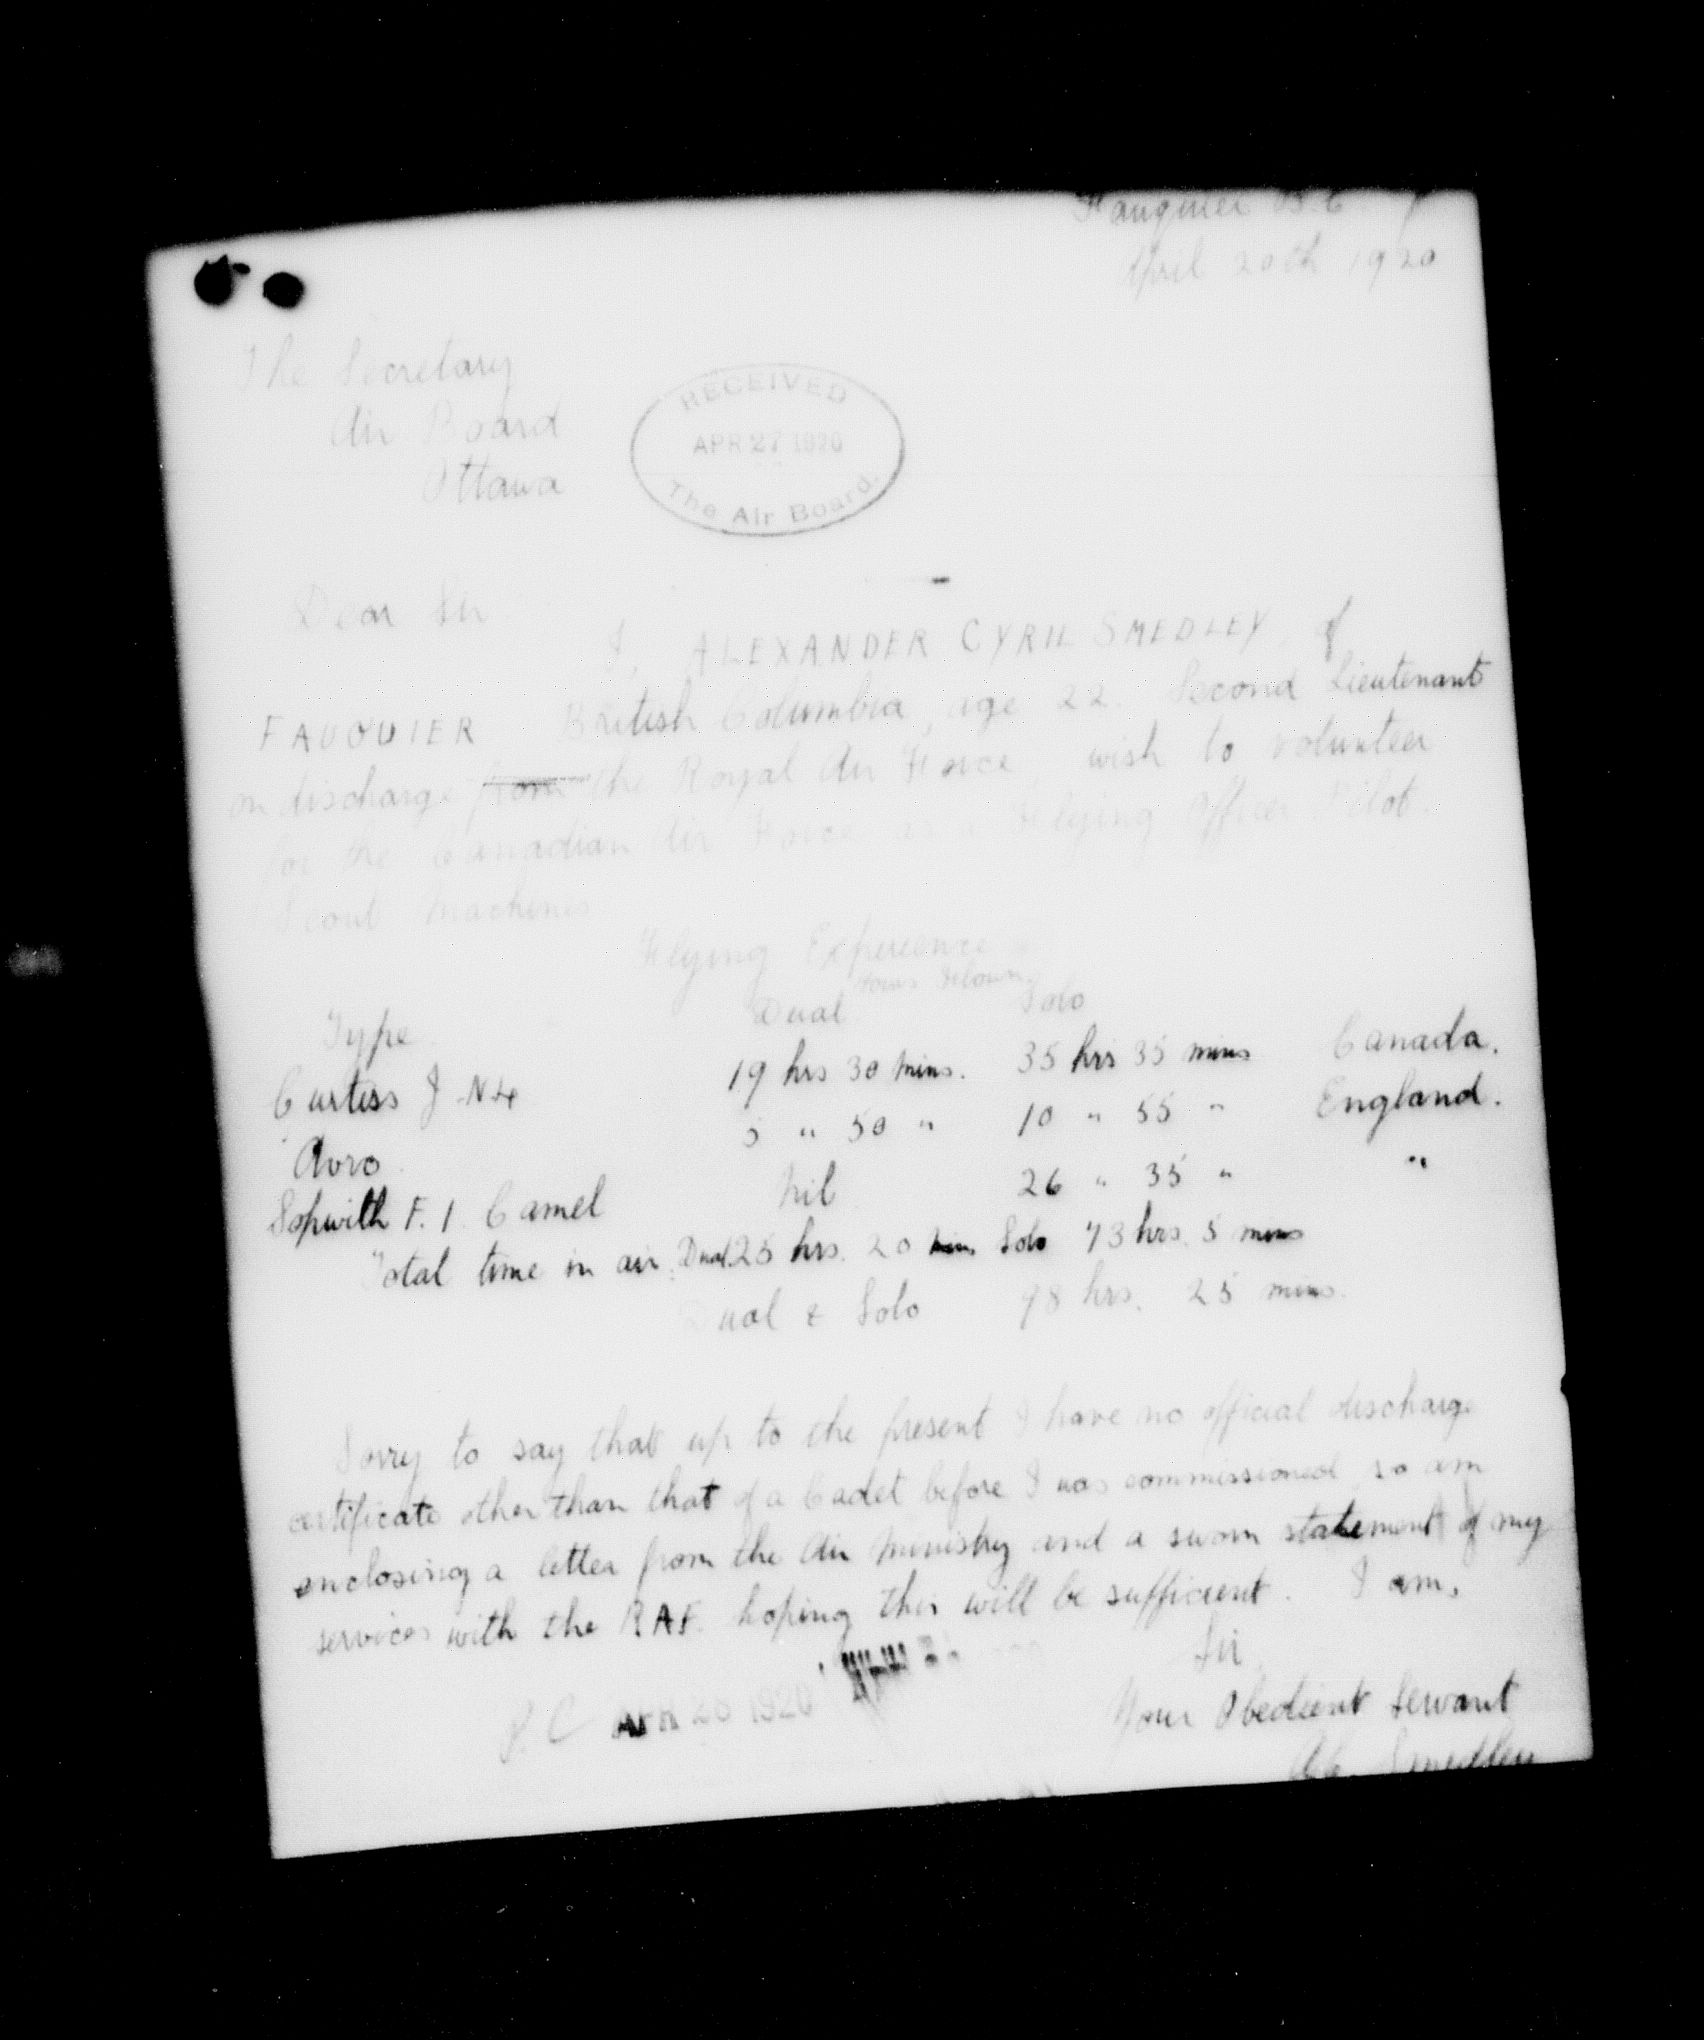 Fauquier B.C
April 20th 1920
The Secretary
Air Board
Ottawa
RECEIVED
APR 27 1920
The Air Board.
Dear Sir
I, ALEXANDER CYRIL SMEDLEY, of
FAUQUIER British Columbia, age 22. Second Lieutenant
on discharge from the Royal Air Force wish to volunteer
for the Canadian Air Force as a Flying Officer Pilot.
Scout Machines
Flying Experience
Hours Flown
Type Dual Solo
Curtiss J.N4 19 hrs 30 mins. 35 hrs 35 mins Canada.
Avro 5 " 50 " 10 " 55 " England.
Sopwith F.1. Camel Nil 26 " 35 " "
Total time in air. Dual. 25 hrs. 20 mins Solo 73 hrs. 5 mins
Dual & Solo 98 hrs. 25 mins.
Sorry to say that up to the present I have no official discharge
certificate other than that of a Cadet before I was commissioned so am
enclosing a letter from the Air Ministry and a sworn statement of my
services with the RAF. hoping this will be sufficient. I am,
Sir
Your Obedient Servant
P.C APR 26 1920
A.C. Smedley